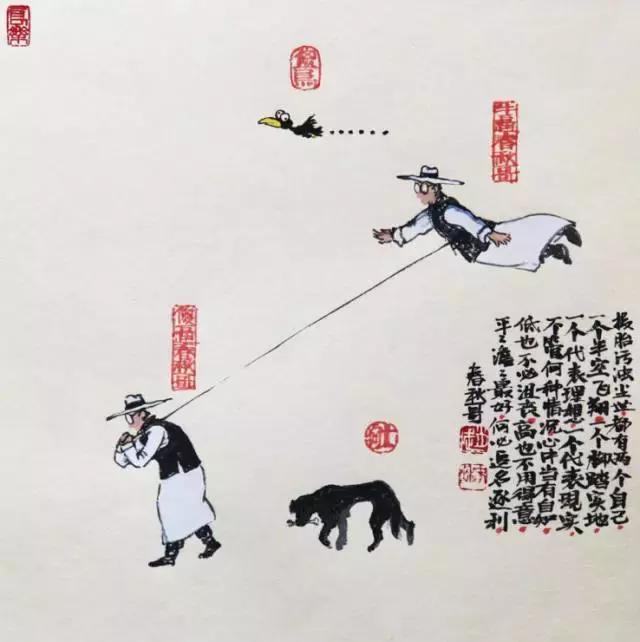 投胎污浊尘世都有两个自己
一个半空飞翔一个脚踏实地
一个代表理想一个代表现实
不管何种情况心中当有自知
低也不必沮丧高也不用得意
平〻澹〻最好何必追名逐利
春秋哥